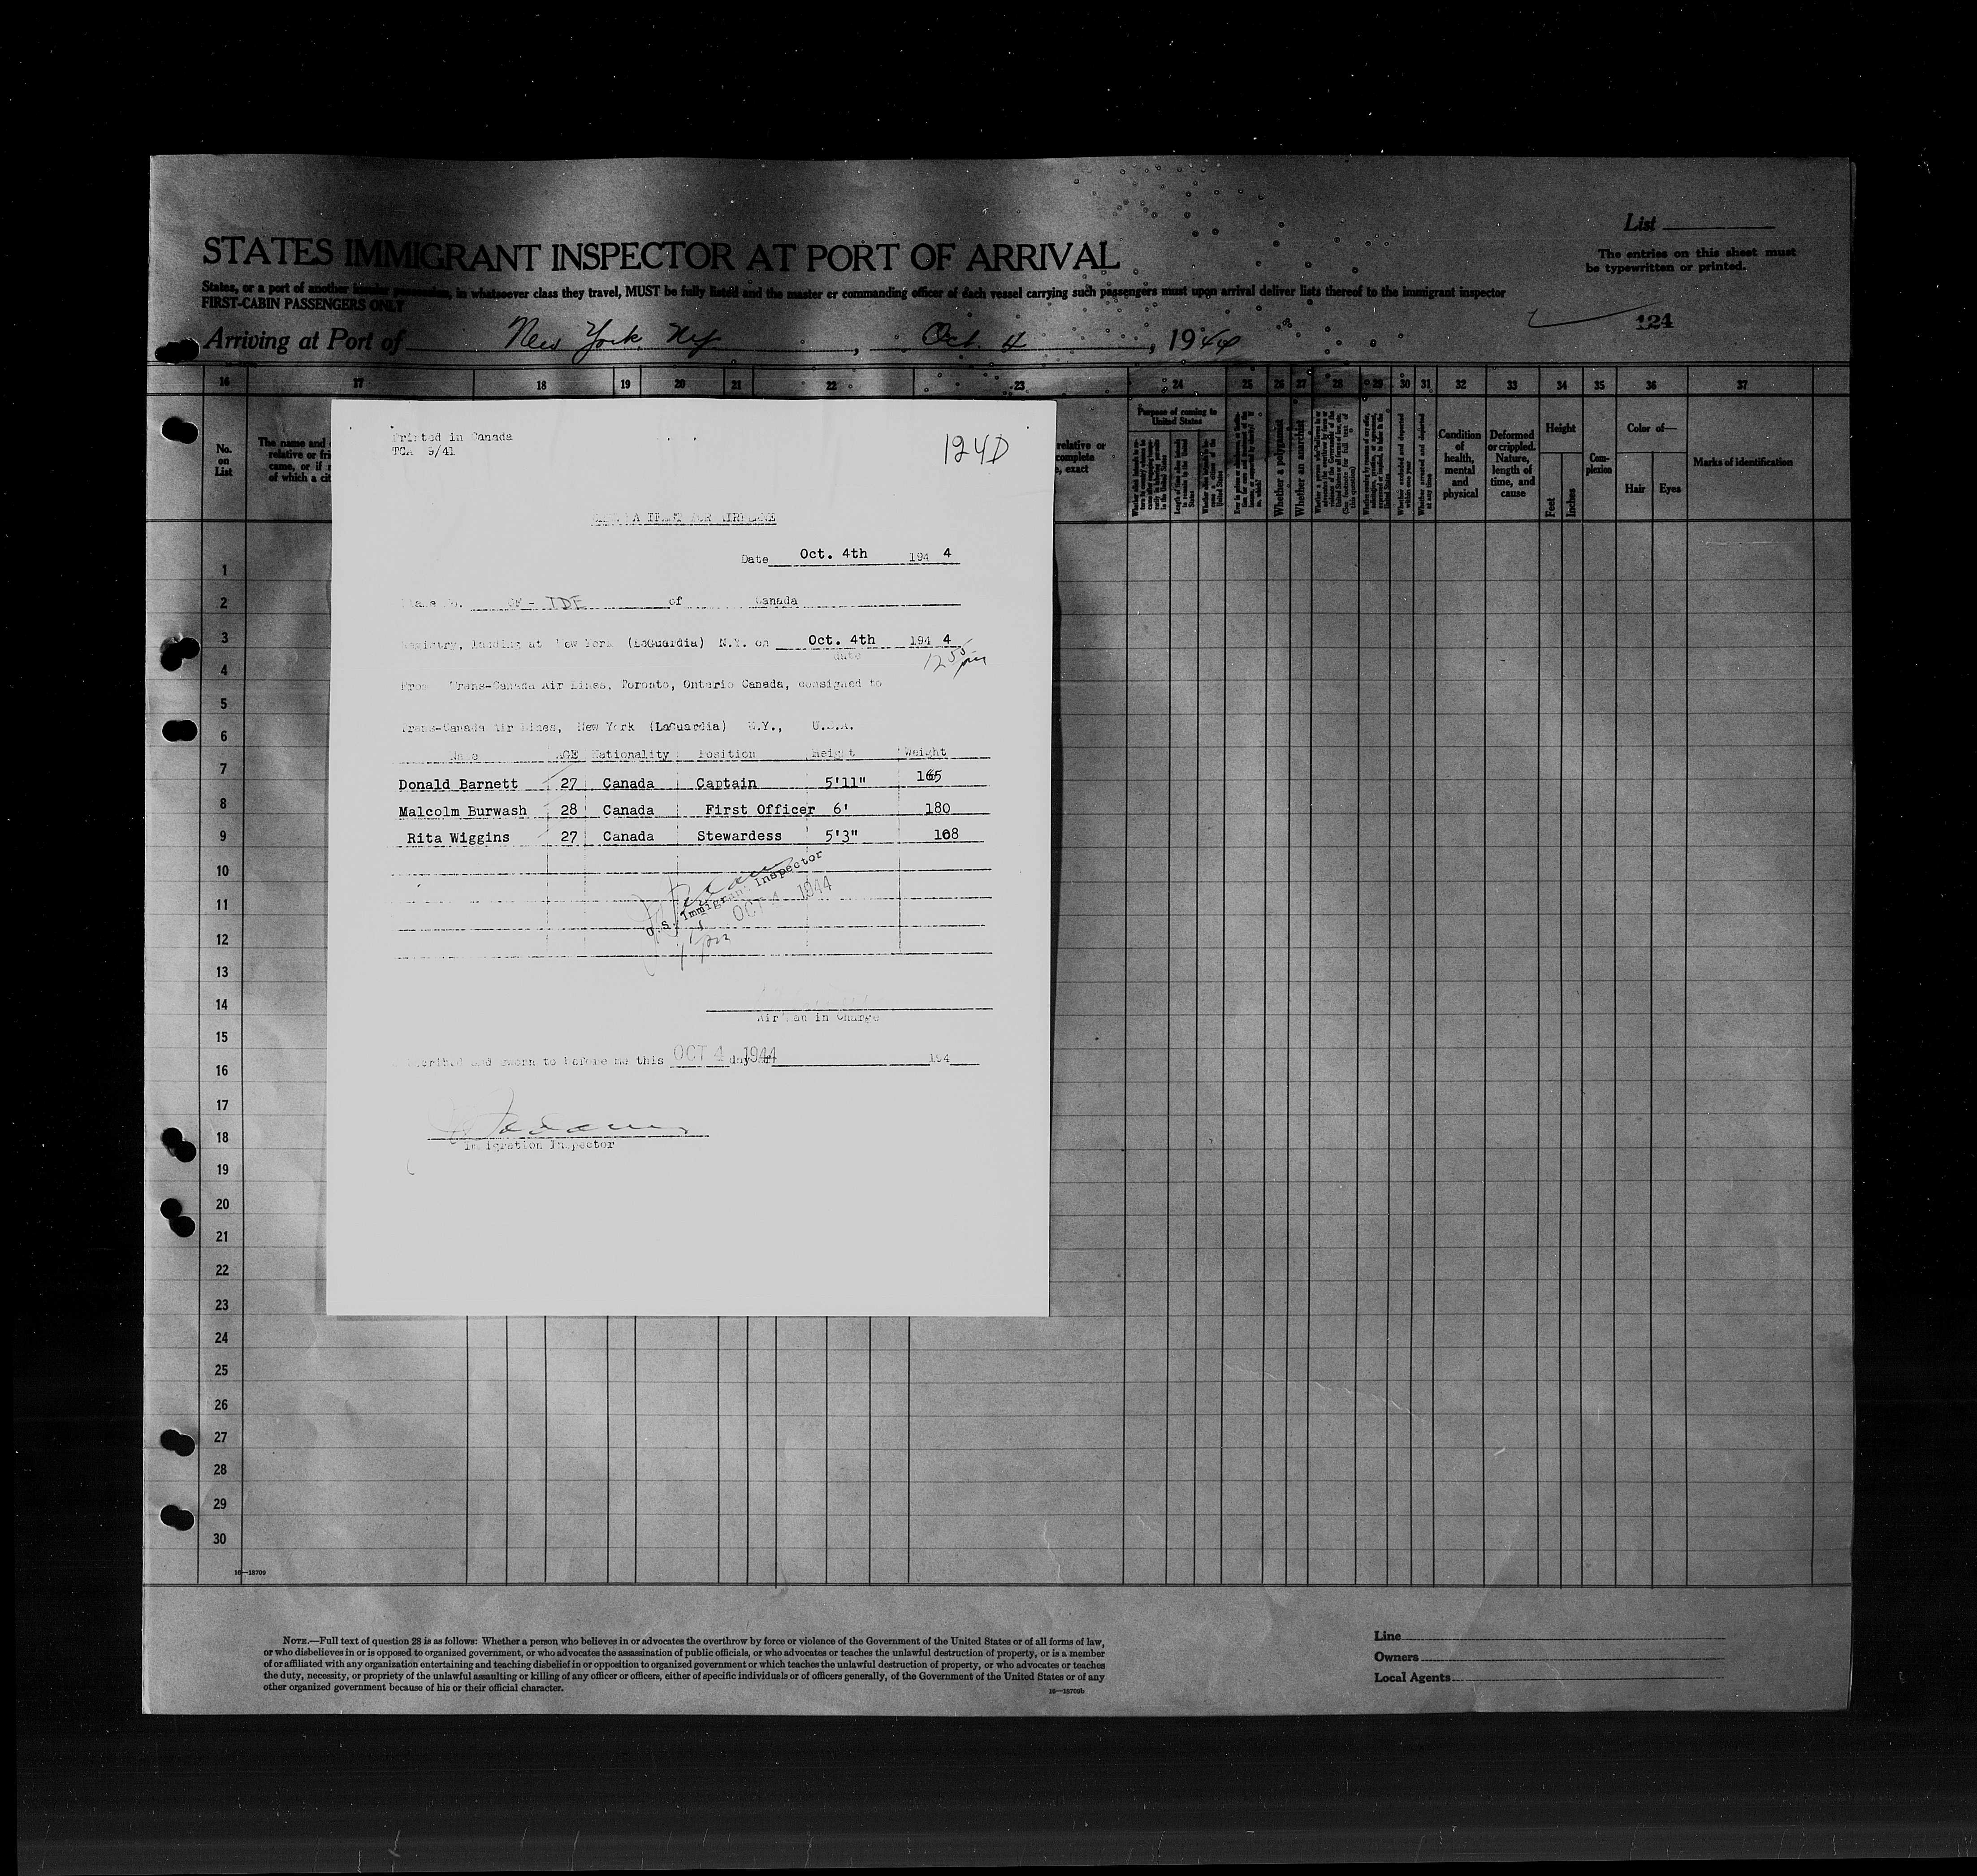 List
STATES IMMIGRANT INSPECTOR AT PORT OF ARRIVAL
The entries on this sheet must
be typewritten or printed.
States, or a port of another insular possession, in whatsoever class they travel, MUST be fully listed and the master or commanding officer of each vessel carrying such passengers must upon arrival deliver lists thereof to the immigrant inspector
FIRST-CABIN PASSENGERS ONLY
124
Arriving at Port of New York, NY, Oct. 4, 1944
16 17 18 19 20 21 22 23 24 25 26 27 28 29 30 31 32 33 34 35 36 37
No. on List
The name and
relative or fri
came, or if
of which a cit
relative or
complete
, exact
Purpose of coming to United States
Whether a polygamist
Whether an anarchist
Whether excluded and deported within one year
Whether arrested and deported at any time
Condition of health, mental and physical
Deformed or crippled. Nature, length of time, and cause
Height
Feet
Inches
Complexion
Color of—
Hair
Eyes
Marks of identification
Printed in Canada
TCA 9/41
124D
FOR AIRPLANE
Date Oct. 4th 194 4
Plane No. CF - TDE of Canada
Registry, landing at New York (LaGuardia) N.Y. on Oct. 4th 194 4
date
12 50 pm
From Trans-Canada Air Lines, Toronto, Ontario Canada, consigned to
Trans-Canada Air Lines, New York (LaGuardia) N.Y., U.S.A.
Name AGE Nationality Position Height Weight
Donald Barnett 27 Canada Captain 5'11" 165
Malcolm Burwash 28 Canada First Officer 6' 180
Rita Wiggins 27 Canada Stewardess 5'3" 108
U.S. Immigrant Inspector
OCT 4 1944
1 pm
Airman in Charge
Subscribed and sworn to before me this OCT 4 1944 day of 194
Immigration Inspector
1
2
3
4
5
6
7
8
9
10
11
12
13
14
15
16
17
18
19
20
21
22
23
24
25
26
27
28
29
30
16—18709
NOTE.—Full text of question 28 is as follows: Whether a person who believes in or advocates the overthrow by force or violence of the Government of the United States or of all forms of law,
or who disbelieves in or is opposed to organized government, or who advocates the assassination of public officials, or who advocates or teaches the unlawful destruction of property, or is a member
of or affiliated with any organization entertaining and teaching disbelief in or opposition to organized government or which teaches the unlawful destruction of property, or who advocates or teaches
the duty, necessity, or propriety of the unlawful assaulting or killing of any officer or officers, either of specific individuals or of officers generally, of the Government of the United States or of any
other organized government because of his or their official character.
16—18709b
Line
Owners
Local Agents